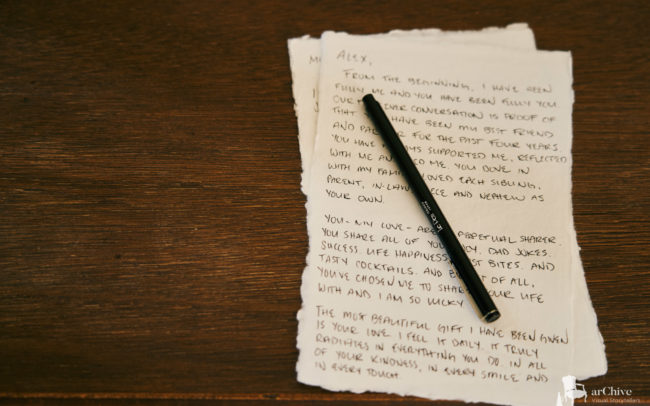 ALEX,
FROM THE BEGINNING, I HAVE BEEN
FULLY ME AND YOU HAVE BEEN FULLY YOU
OUR CONVERSATION IS PROOF OF
THAT HAVE BEEN MY BEST FRIEND
AND FOR THE PAST FOUR YEARS.
YOU HAVE SUPPORTED ME, REFLECTED
WITH ME ME. YOU DOVE IN
WITH MY LOVED EACH SIBLING,
PARENT, IN-LAW AND NEPHEW AS
YOUR OWN.
YOU - MY LOVE - PERPETUAL SHARER.
YOU SHARE ALL OF DAD JOKES.
SUCCESS. LIFE HAPPINESS BITES. AND
TASTY COCKTAILS. AND OF ALL,
YOU'VE CHOSEN ME TO YOUR LIFE
WITH AND I AM SO LUCKY
THE MOST BEAUTIFUL GIFT I HAVE BEEN GIVEN
IS YOUR LOVE I FEEL IT DAILY. IT TRULY
RADIATES IN EVERYTHING YOU DO IN ALL
OF YOUR KINDNESS, IN EVERY SMILE AND
IN EVERY TOUCH.
arChive
Visual Storytellers